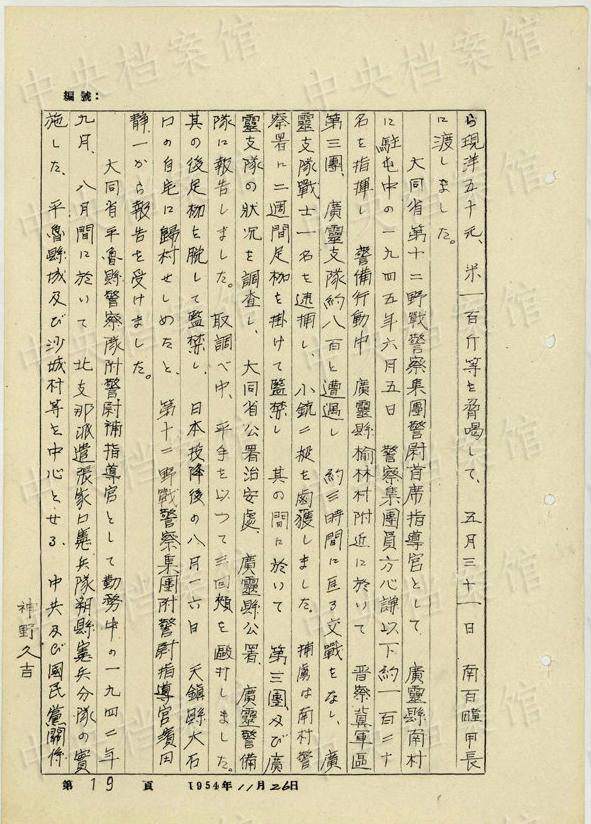 編號：
ら現洋五十元、米一百斤等を脅喝して、五月三十一日 南百疃甲長
に渡しました。
大同省第十二野戰警察集團警尉首席指導官として 廣靈縣南村
に駐屯中の一九四五年六月五日 警察集團員方心謙以下約一百二十
名を指揮し 警備行動中 廣靈縣榆林村附近に於いて 晋察冀軍區
第三團、廣靈支隊約八百と遭遇し 約三時間に亘る交戰をなし、廣
靈支隊戰士一名を逮捕し、小銃二挺を鹵獲しました。捕虜は南村警
察署に二週間足枷を掛けて監禁し 其の間に於いて 第三團及び廣
靈支隊の狀況を調査し、大同省公署治安處、廣靈縣公署、廣靈警備
隊に報告しました。取調べ中、平手を以つて三回頬を毆打しました。
其の後足枷を脫して監禁し、日本投降後の八月一六日 天鎮縣大石
口の自宅に歸村せしめたと、第十二野戰警察集團附警尉指導官濱田
静一から報告を受けました。
大同省平魯縣警察隊附警尉補指導官として勤務中の一九四二年
九月、八月間に於いて 北支那派遣張家口憲兵隊朔縣憲兵分隊の實
施した、平魯縣城及び沙城村等を中心とせる、中共及び國民黨關係
神野久吉
第 19 頁 1954年 11月 26日
中央档案馆